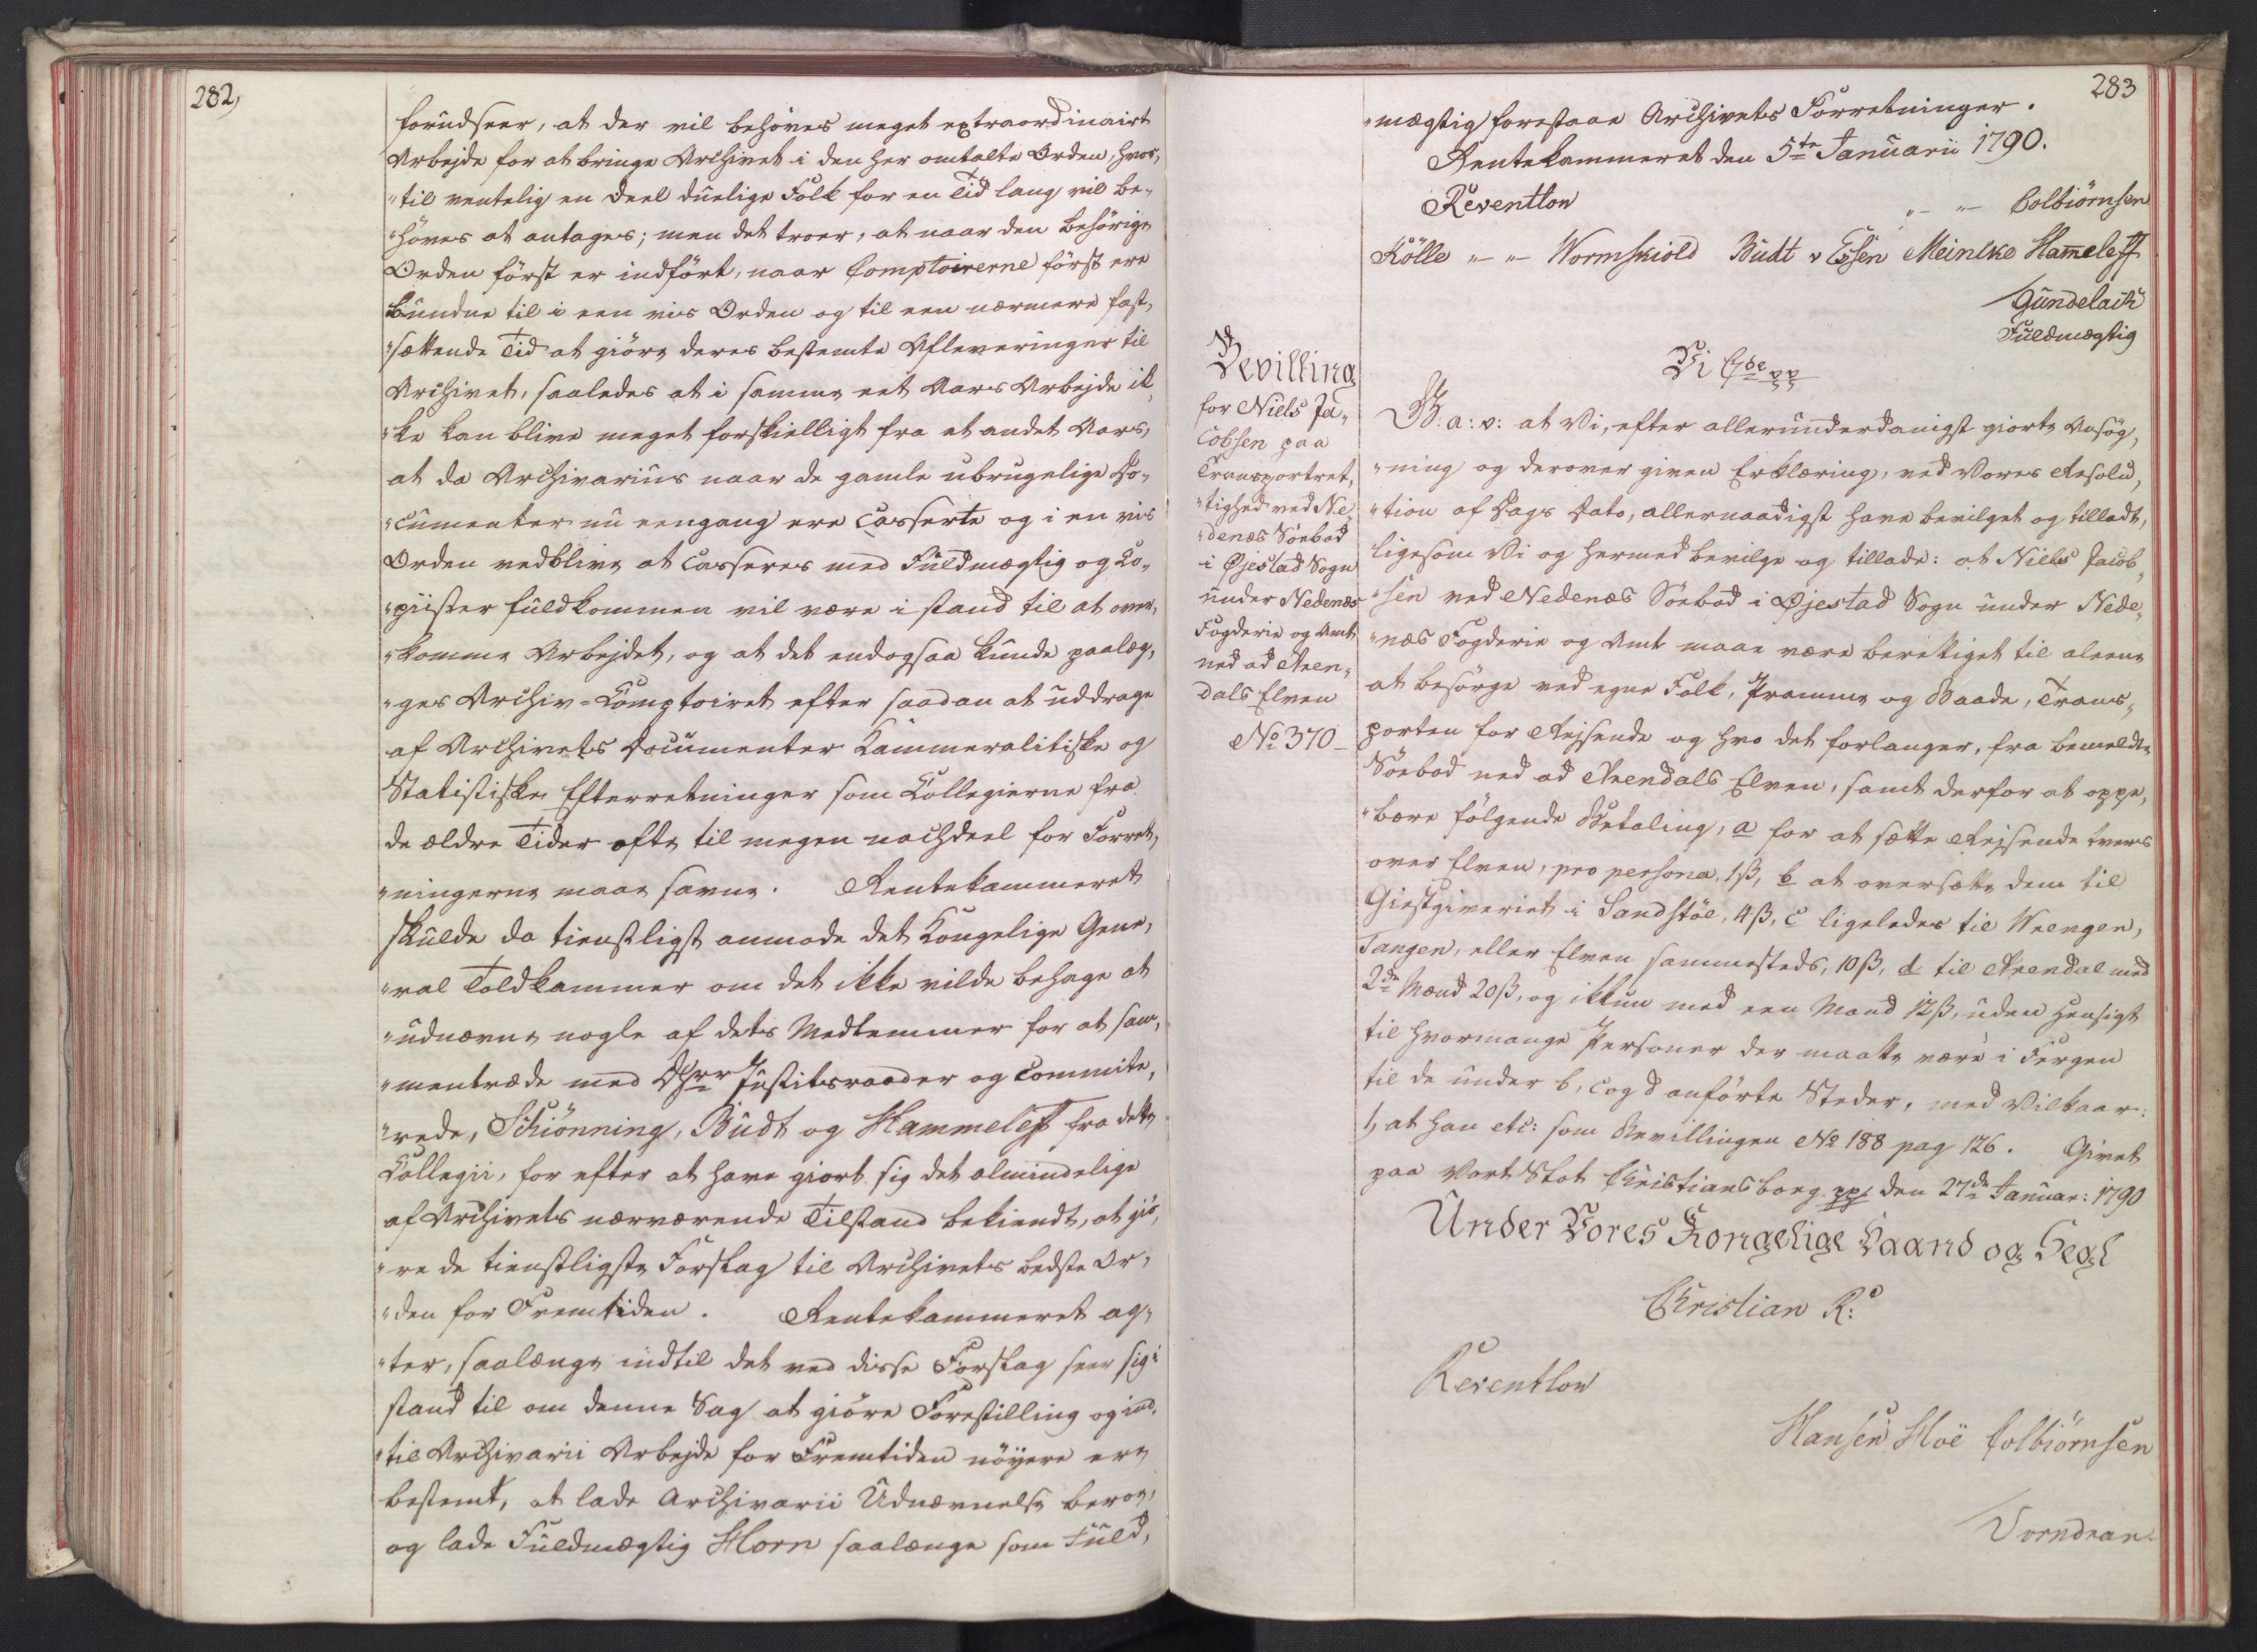 282,
forudseer, at der vil behöves meget extraordinairt
Arbejde for at bringe Archivet i den her omtalte Orden, hvor,
"til ventelig en Deel duelige Folk for en Tid lang vil be,
"höves at antages; men det troer, at naar den behörige
Orden först er indfört, naar Comptoirerne först ere
bundne til i een vis Orden og til een nærmere fast,
"sættende Tid at giöre deres bestemte Afleveringer til
Archivet, saaledes at i samme eet Aars Arbejde ik,
"ke kan blive meget forskielligt fra et andet Aars,
at da Archivarius naar de gamle ubrugelige Do,
"cumenter nu eengang ere casserte og i en vis
Orden vedblive at casseres med Fuldmægtig og Co,
"piister fuldkommen vil være i stand til at over,
"komme Arbejdet, og at det endogsaa kunde paalæg,
"ges Archiv=Comptoiret efter saadan at uddrage
af Archivets Documenter Kammeralitiske og
Statistiske Efterretninger som Collegierne fra
de ældre Tider ofte til megen nachdeel for Forret,
"ningerne maae savne. Rentekammeret
skulde da tienstligst anmode det Kongelige Gene,
"ral Toldkammer om det ikke vilde behage at
"udnævne nogle af dets Medlemmer for at sam,
"mentræde med Hrr Justitsraader og Committe,
"rede, Schiönning, Budt og Hammeleff fra dette
Collegii, for efter at have giort sig det almindelige
af Archivets nærværende Tilstand bekiendt, at giö,
"re de tienstligste Forslag til Archivets bedste Or,
"den for Fremtiden. Rentekammeret ag,
"ter, saalænge indtil det ved disse Forslag seer sig i
stand til om denne Sag at giöre Forestilling og ind,
"til Archivarii Arbejde for Fremtiden nöyere ere
bestemt, at lade Archivarii Udnævnelse beroe,
og lade Fuldmægtig Horn saalænge som Fuld,
283
"mægtig forestaae Archivets Forretninger.
Rentekammeret den 5te Januarii 1790.
Reventlow "-"- Colbiörnsen
Kölle "-"- Wormskiold Budt v Essen Meincke Hameleff
Gundelach
Fuldmægtig
Bevilling
for Niels Ja,
cobsen paa
Transportret,
"tighed ved Ne,
"denæs Söebod
i Øjestad Sogn
under Nedenæs
Fogderie og Amt
ned ad Aren,
dals Elven
No 370
Vi C7de pp
G. a: v: at Vi, efter allerunderdanigst giorte Ansög,
"ning og derover given Erklæring, ved Vores Resolu,
"tion af Dags Dato, allernaadigst have bevilget og tilladt,
ligesom Vi og hermed bevilge og tillade: at Niels Jacob,
"sen ved Nedenæs Söebod i Øjestad Sogn under Nede,
"næs Fogderie og Amt maae være berettiget til aleene
at besörge ved egne Folk, Pramme og Baade, Trans,
porten for Rejsende og hvo det forlanger, fra bemeldte
Söebod ned ad Arendals Elven, samt derfor at oppe,
"bære fölgende Betaling, a for at sætte Rejsende tvers
over Elven, pro persona, 1ß, b at oversætte dem til
Giestgiveriet i Sandstöe, 4ß, c ligeledes til Wrengen,
Tangen, eller Elven sammesteds, 10ß, d til Arendal med
2de Mænd 20ß, og ikkun med een Mand 12ß, uden Hensigt
til hvormange Personer der maatte være i Færgen
til de under b, c og d anförte Steder, med Vilkaar:
1, at han etc: som Bevillingen No 188 pag 126. Givet
paa Vort Slot Christiansborg pp den 27de Januar: 1790
Under Vores Kongelige Haand og Segl
Christian R:
Reventlow
Hansen Hoë Colbiörnsen
Vorndran